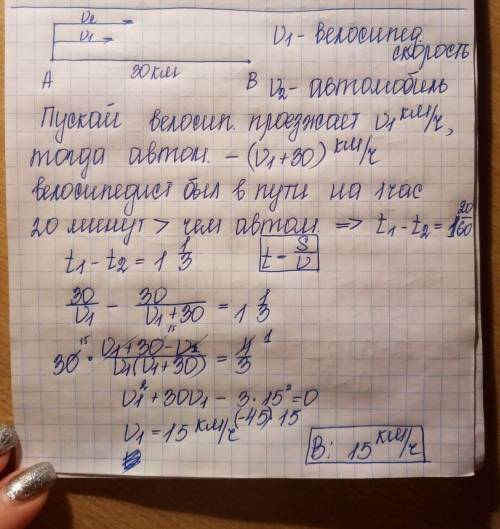 v₂
v₁
A 30 км B
v₁ - велосипед
скорость
v₂ - автомобиль
Пускай велосип. проезжает v₁ км/ч,
тогда автом. - (v₁+30) км/ч
велосипедист был в пути на 1 час
20 минут > чем автом. => t₁ - t₂ = 1 20/60
t₁ - t₂ = 1 1/3 t - S/v
30/v₁ - 30/(v₁+30) = 1 1/3
30 15 · (v₁+30-v₁)/(v₁(v₁+30)) 15 = 4/3 1
v₁² + 30v₁ - 3·15² = 0
v₁ = 15 км/ч (-45) 15
В: 15 км/ч